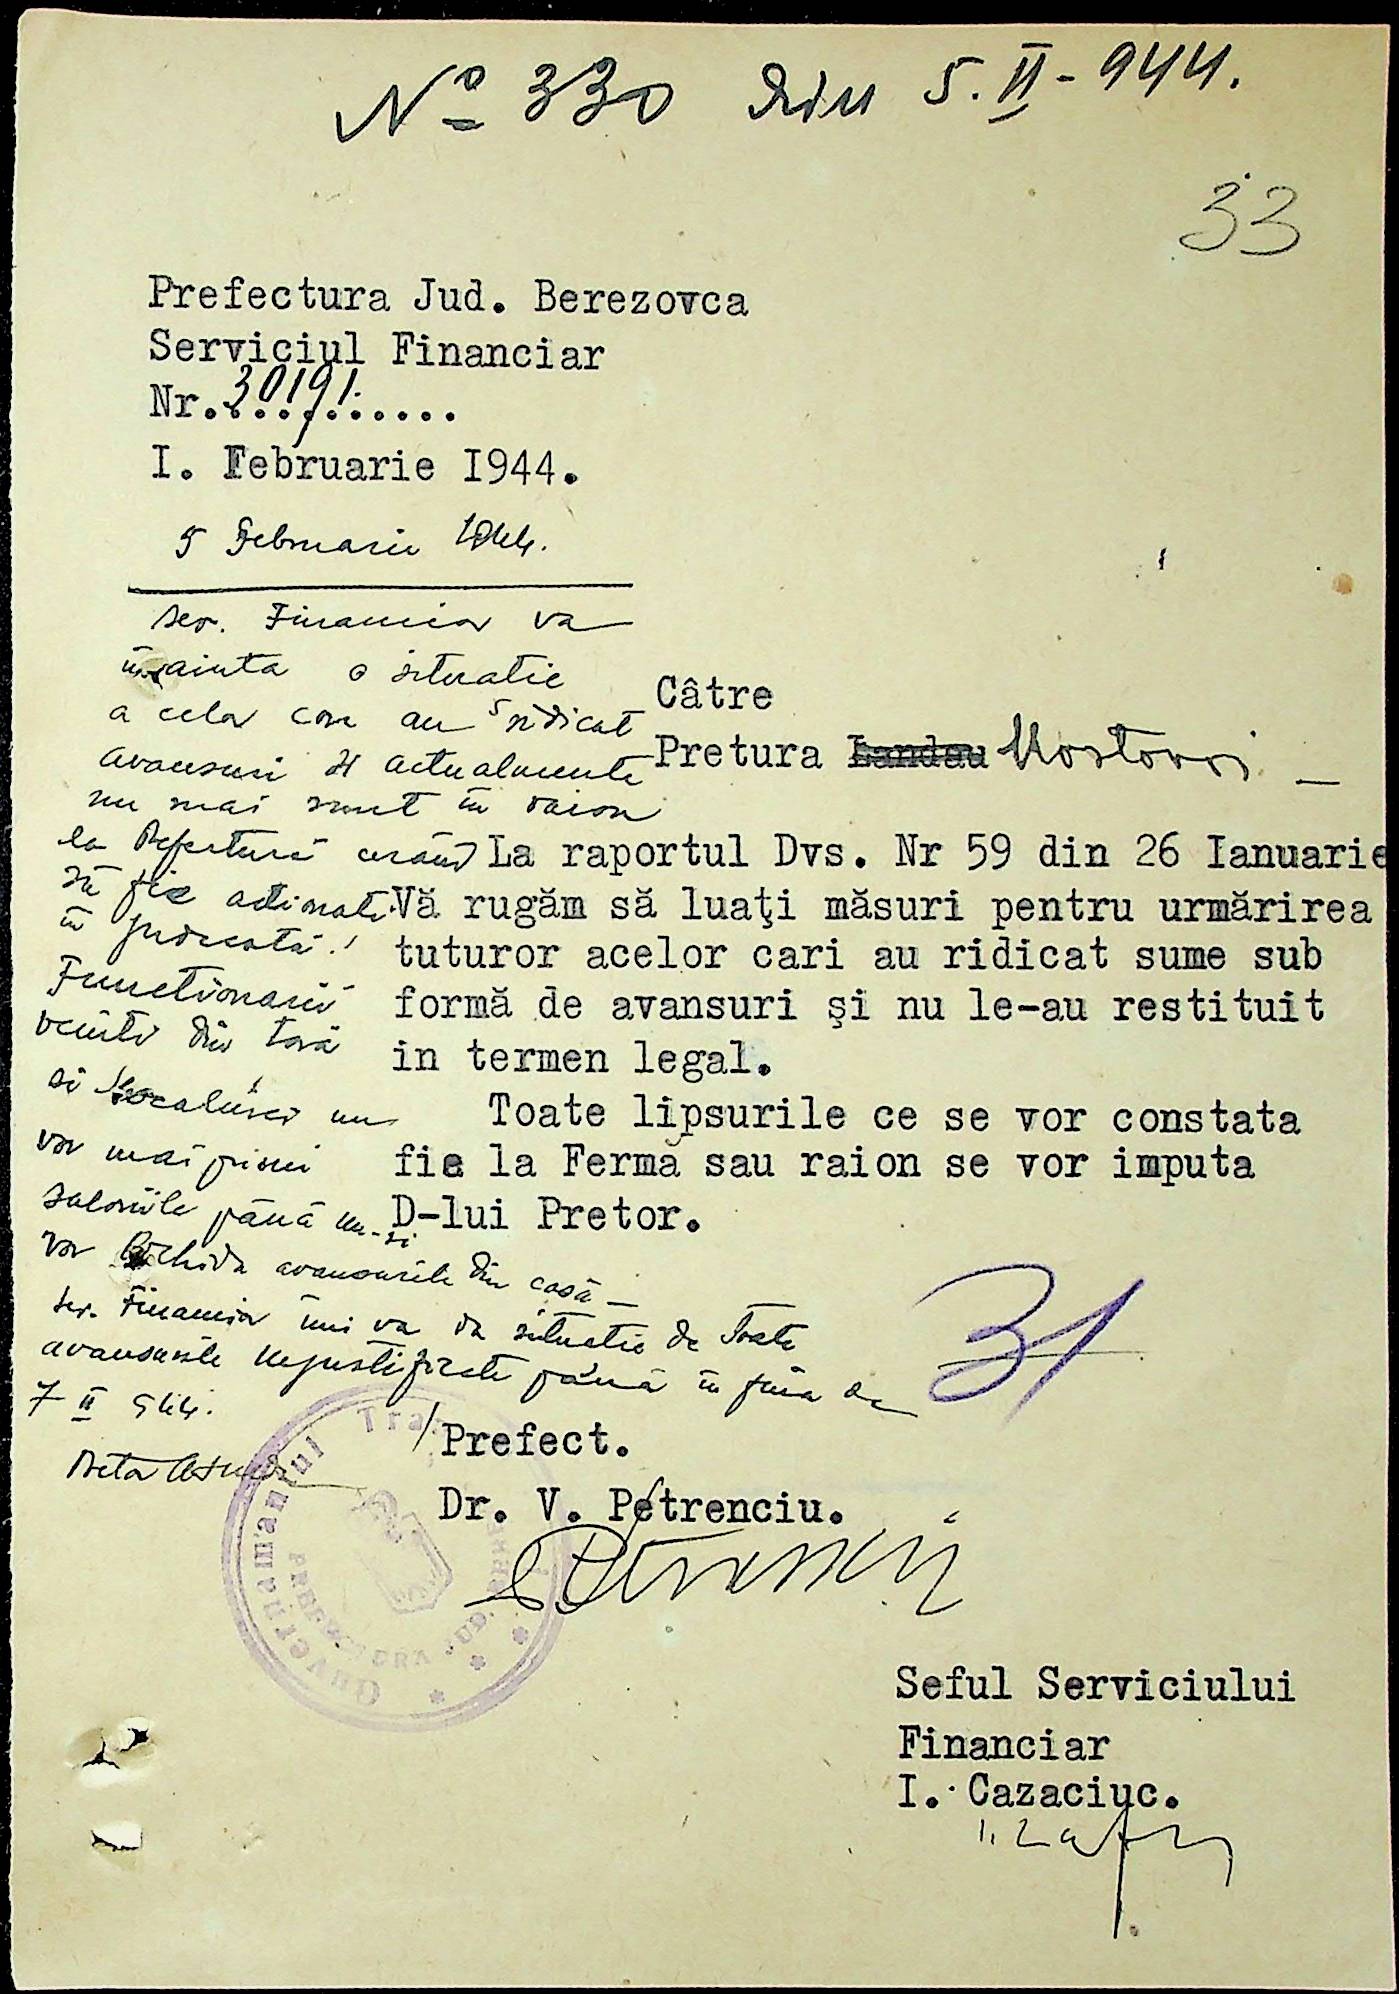 Nº 330 din 5. II - 944.
33
Prefectura Jud. Berezovca
Serviciul Financiar
Nr. 30191.
I. Februarie 1944.
5 Februarie 1944.
Ser. Financiar va
inainta o situatie
a celor care au ridicat
avansuri si actualmente
nu mai sunt in raion
la Prefectură cerând
să fie actionati
in judecată!
Functionarii
veniti din tară
si localnici nu
vor mai primi
salariile până nu-si
vor lichida avansurile din casă —
Ser. Financiar imi va da situatie de toate
avansurile nejustificate până in ziua de
7 II 944.
Câtre
Pretura Landau Mostovoi —
La raportul Dvs. Nr 59 din 26 Ianuarie
Vă rugăm să luaţi măsuri pentru urmărirea
tuturor acelor cari au ridicat sume sub
formă de avansuri şi nu le-au restituit
in termen legal.
Toate lipsurile ce se vor constata
fie la Fermă sau raion se vor imputa
D-lui Pretor.
31
/Prefect.
Dr. V. Petrenciu.
Guvernamantul Tran
PREFECTURA JUD.
Seful Serviciului
Financiar
I. Cazaciuc.